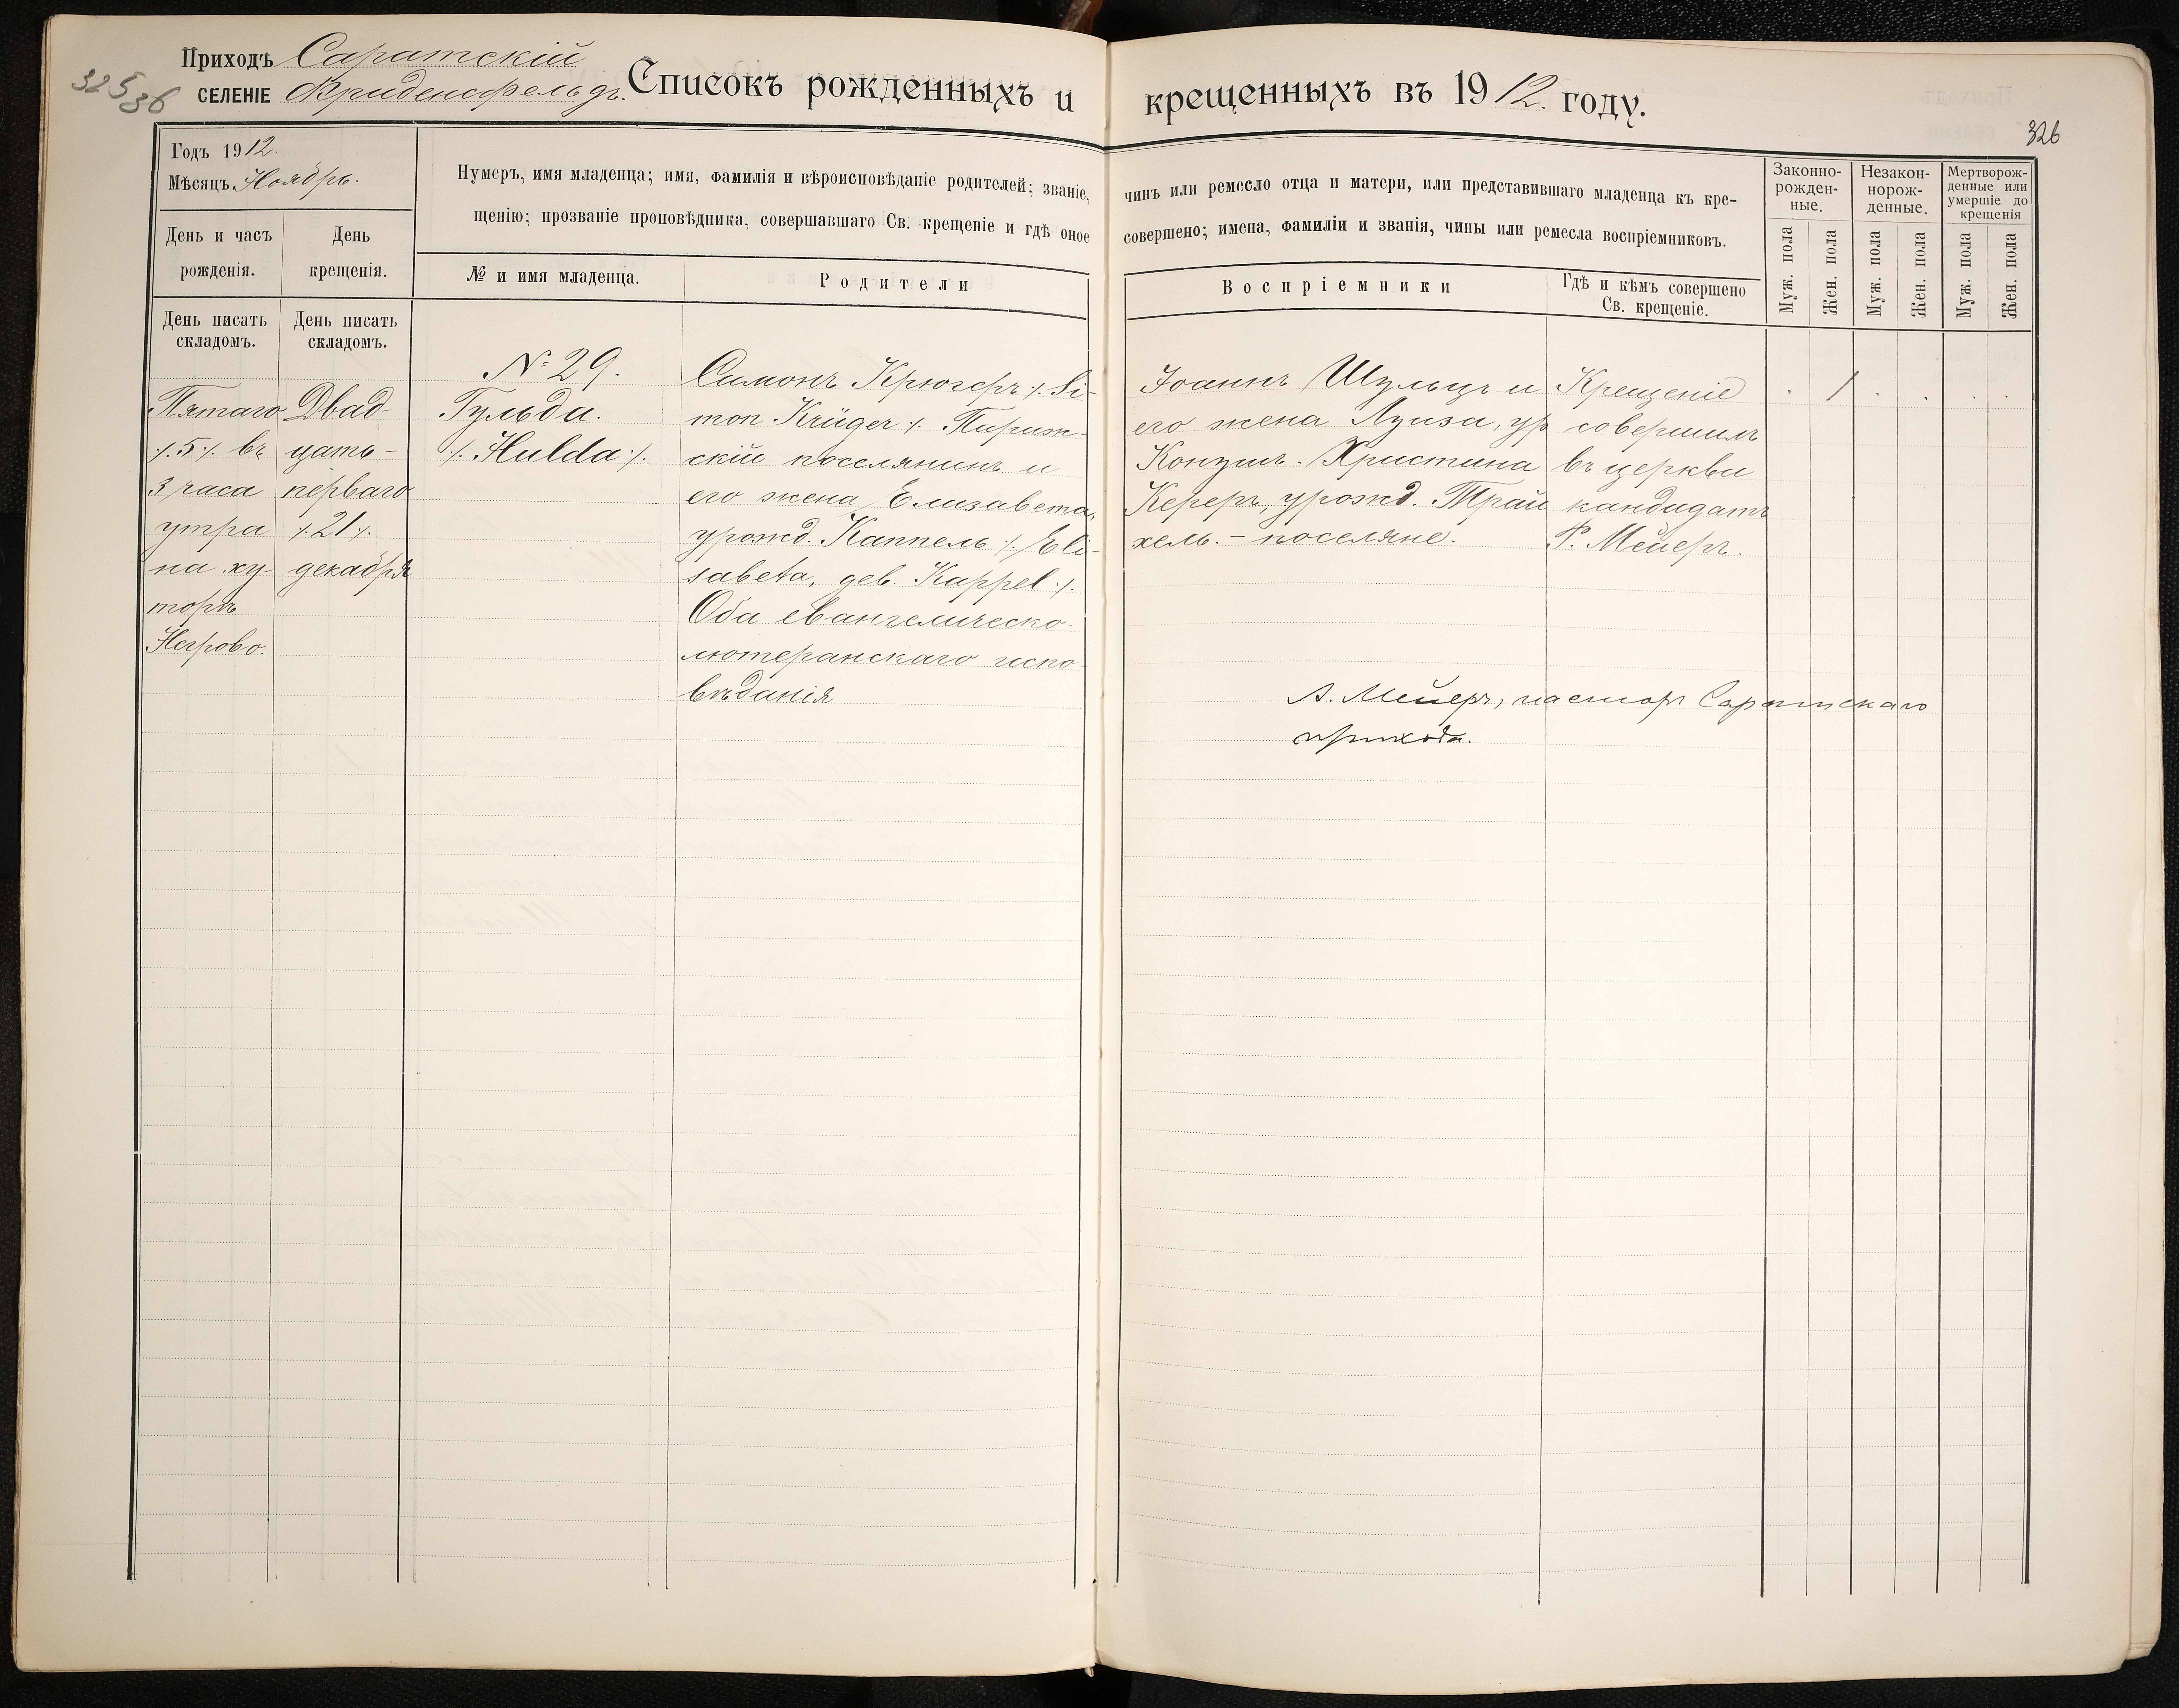 Приходъ Саратскій
325 36 СЕЛЕНІЕ Фриденсфельдъ. Списокъ рожденныхъ и крещенныхъ въ 1912. году.
326
Годъ 1912.
Мѣсяцъ Ноябрь.
День и часъ рожденія.
День крещенія.
Нумеръ, имя младенца; имя, фамилія и вѣроисповѣданіе родителей; званіе, чинъ или ремесло отца и матери, или представившаго младенца къ кре-
щенію; прозваніе проповѣдника, совершавшаго Св. крещеніе и гдѣ оное совершено; имена, фамиліи и званія, чины или ремесла воспріемниковъ.
№ и имя младенца.
Родители
Воспріемники
Гдѣ и кѣмъ совершено
Св. крещеніе.
Законно-
рожден-
ные.
Незакон-
норож-
денные.
Мертворож-
денные или
умершіе до
крещенія
Муж. пола
Жен. пола
Муж. пола
Жен. пола
Муж. пола
Жен. пола
День писать
складомъ.
День писать
складомъ.
Пятаго
٪5٪ въ
3 часа
утра
на ху-
торѣ
Двад-
цать-
перваго
٪21٪
декабря
№ 29.
Гульда.
٪Hulda٪
Симонъ Крюгеръ ٪Si-
mon Krüger٪ Париж-
скій поселянинъ и
его жена Елизавета,
урожд. Каппель ٪Eli-
sabeta, geb. Kappel٪
Оба евангелическо-
лютеранскаго испо-
вѣданія
Іоаннъ Шульцъ и
его жена Луиза, ур
Христина
Кереръ, урожд. Трай
хель. - поселяне.
Крещеніе
совершилъ
въ церкви
кандидатъ
Р. Мейеръ.
. 1 . . . .
А. Мейеръ, пасторъ Саратскаго
прихода.